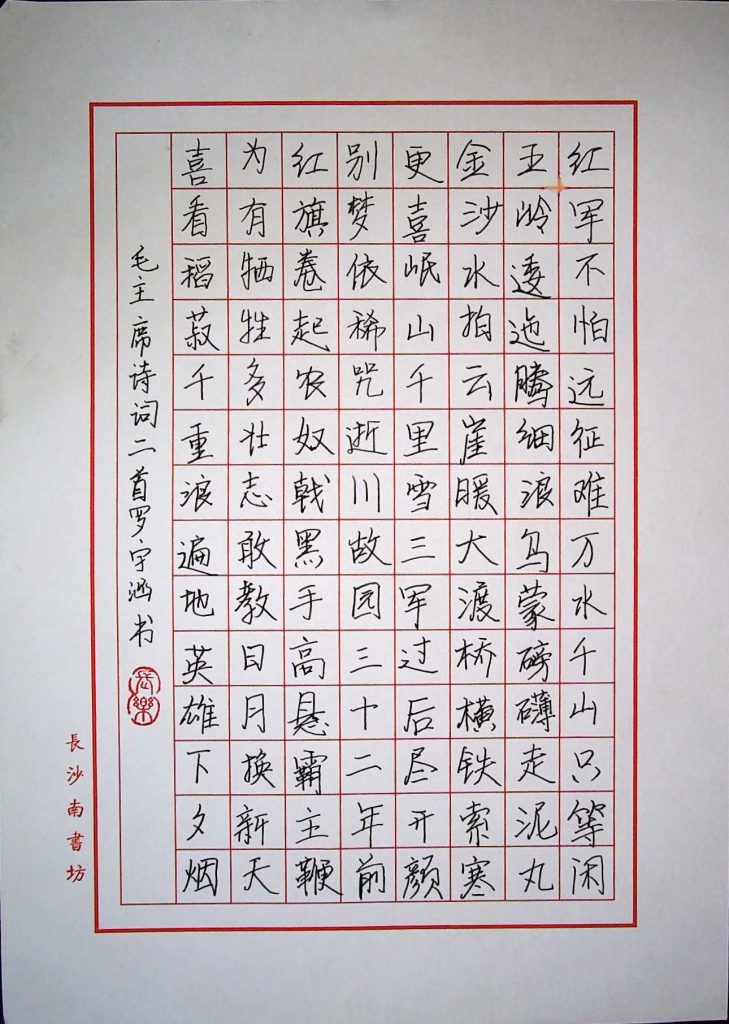 红军不怕远征难万水千山只等闲
五岭逶迤腾细浪乌蒙磅礴走泥丸
金沙水拍云崖暖大渡桥横铁索寒
更喜岷山千里雪三军过后尽开颜
别梦依稀咒逝川故园三十二年前
红旗卷起农奴戟黑手高悬霸主鞭
为有牺牲多壮志敢教日月换新天
喜看稻菽千重浪遍地英雄下夕烟
毛主席诗词二首罗宇涵书
長樂
長沙南書坊